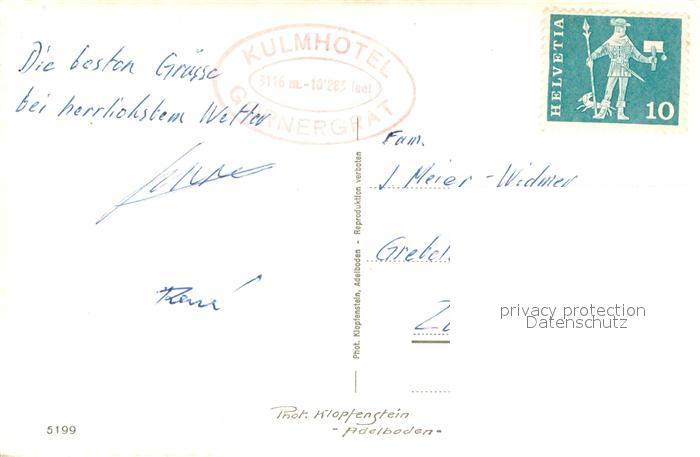 Die besten Grüsse
bei herrlichstem Wetter
René
KULMHOTEL
3116 m. - 10'285 feet
GORNERGRAT
HELVETIA
10
Fam.
J. Meier - Widmer
privacy protection
Datenschutz
Phot. Klopfenstein, Adelboden - Reproduktion verboten
Phot. Klopfenstein
- Adelboden -
5199